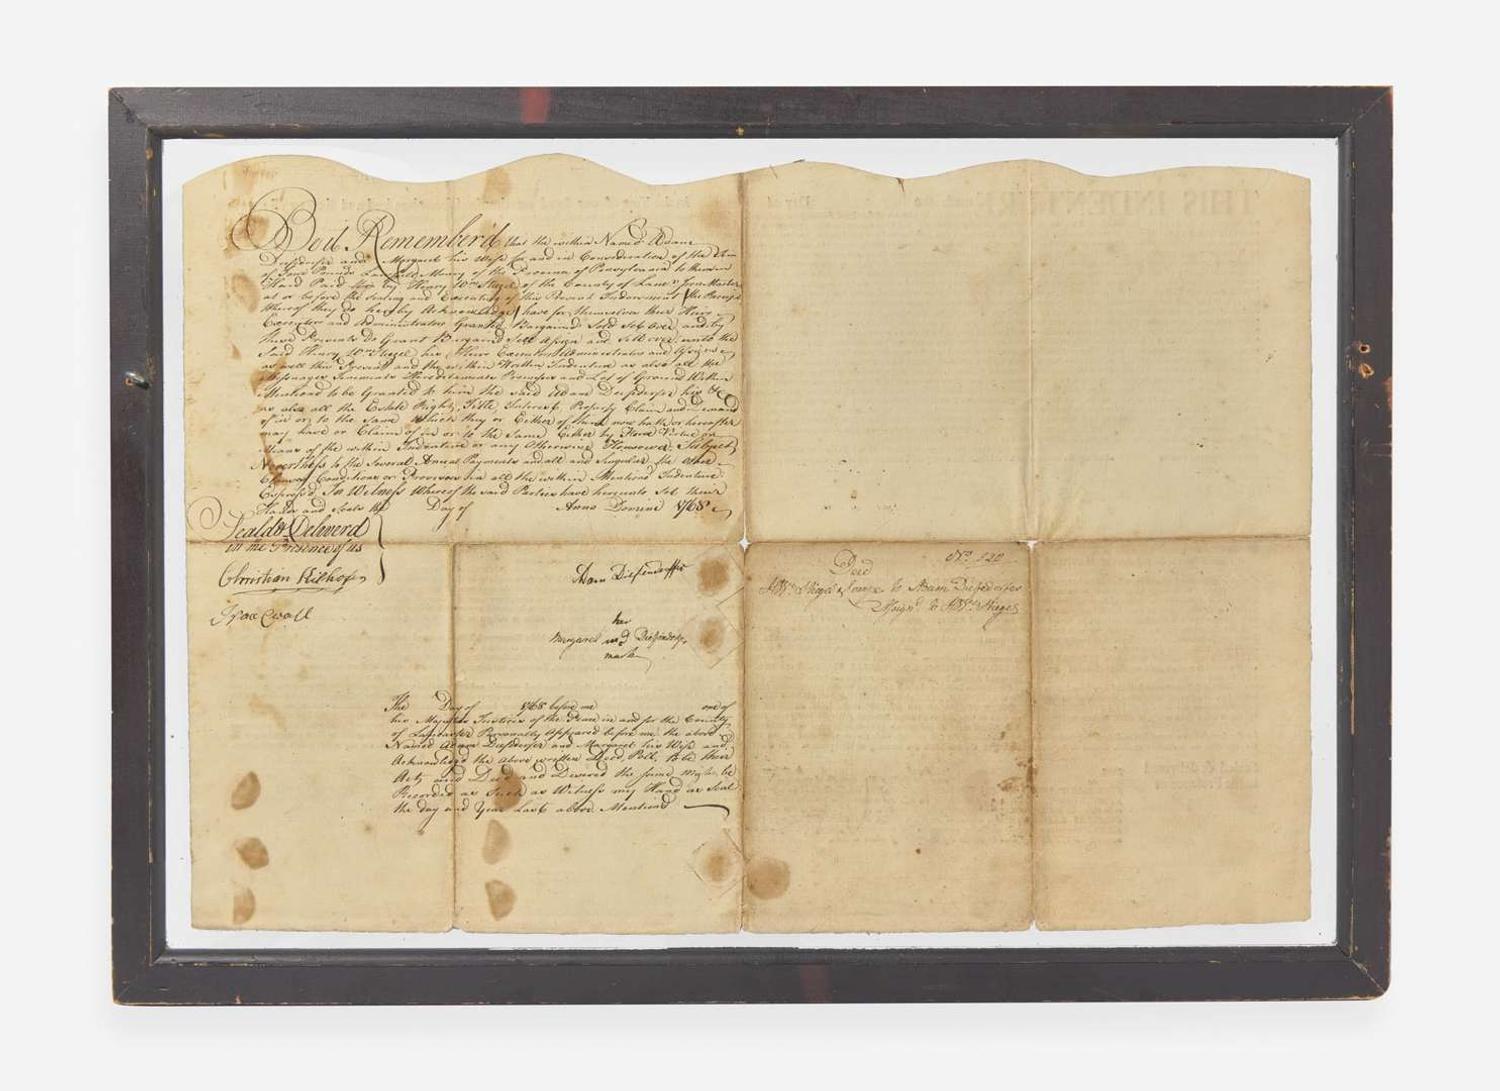 Be it Remember'd that the within Named Adam
Diefderfer and Margaret his Wife for and in Consideration of the Sum
of Four Pounds Lawfull Money of the Province of Pensylvania to them in
Hand Paid by Henry Wm Stiegel of the County of Lancr Iron Master
at or before the Sealing and Executing of this Present Indorsement (the Receipt
Whereof they do hereby Acknowledge) have for themselves their Heirs
Executors and Administrators Granted Bargained Sold Set over and by
these Presents Do Grant Bargained Sell Assign and Sett over unto the
Said Henry Wm Stiegel his Heirs Executors Administrators and Assigns
as well this Present and the within Written Indenture as also all the
Messuages Tenements Hereditaments Premisses and Lot of Ground Within
Mentioned to be Granted to him the said Adam Diefderfer his &c
as also all the Estate Right, Title, Interest, Property Claim and
of in or to the Same Which they or Either of them now hath or hereafter
may have or Claim of in or to the Same Either by Force Virtue or
Means of the within Indenture or any Otherwise Howsoever Subject
Nevertheless to the Several Annual Payments and all and Singular the other
Clauses Conditions or Provisoes in all the within Mentiond Indenture
Express'd In Witness Whereof the said Parties have hereunto Set their
Hands and Seals the Day of Anno Domini 1768
Seald & Deliverd
in the Presence of us
Christian
Isaac Wall
Adam Diefenderffer
her
Margaret Diefenderfer
mark
The Day of 1768 before me one of
his Majesties Justices of the Peace in and for the County
of Lancaster Personally Appeared before me the above
Named Adam Diefderfer and Margaret his Wife and
Acknowledged the above written Deed Poll, to be their
Act and Deed and Desired the same might be
Recorded as Such as Witness my Hand and Seal
the day and Year Last above Mentiond
Deed No. 220
HWm Stiegel & to Adam Diefderfer
Assignt to HWm Stiegel
THIS INDENTURE
Sealed & delivered